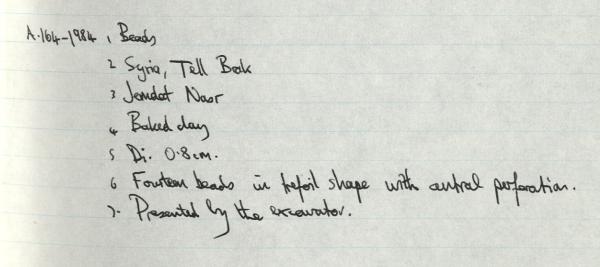 A.164-1984, 1 Beads
2 Syria, Tell Brak
3 Jemdet Nasr
4 Baked clay
5 Di. 0.8cm.
6 Fourteen beads in trefoil shape with central perforation.
7. Presented by the excavator.